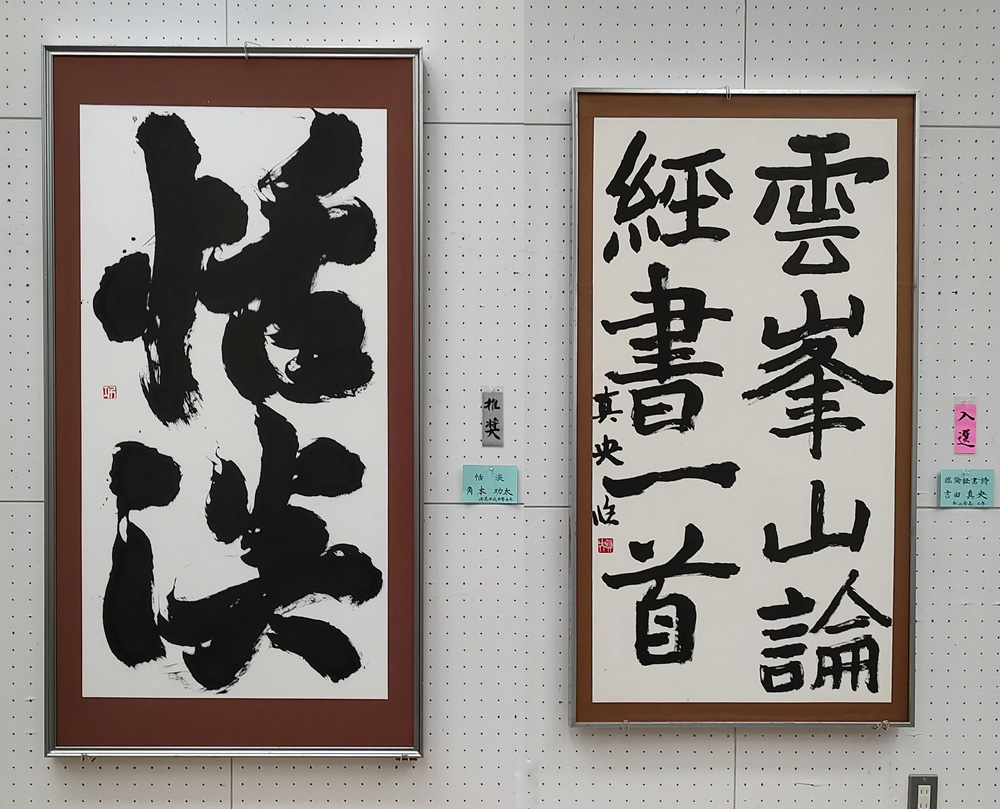 恬淡
推奨
恬淡
角本 功太
雲峯山論
經書一首
真央臨
入選
臨論経書詩
吉田 真央